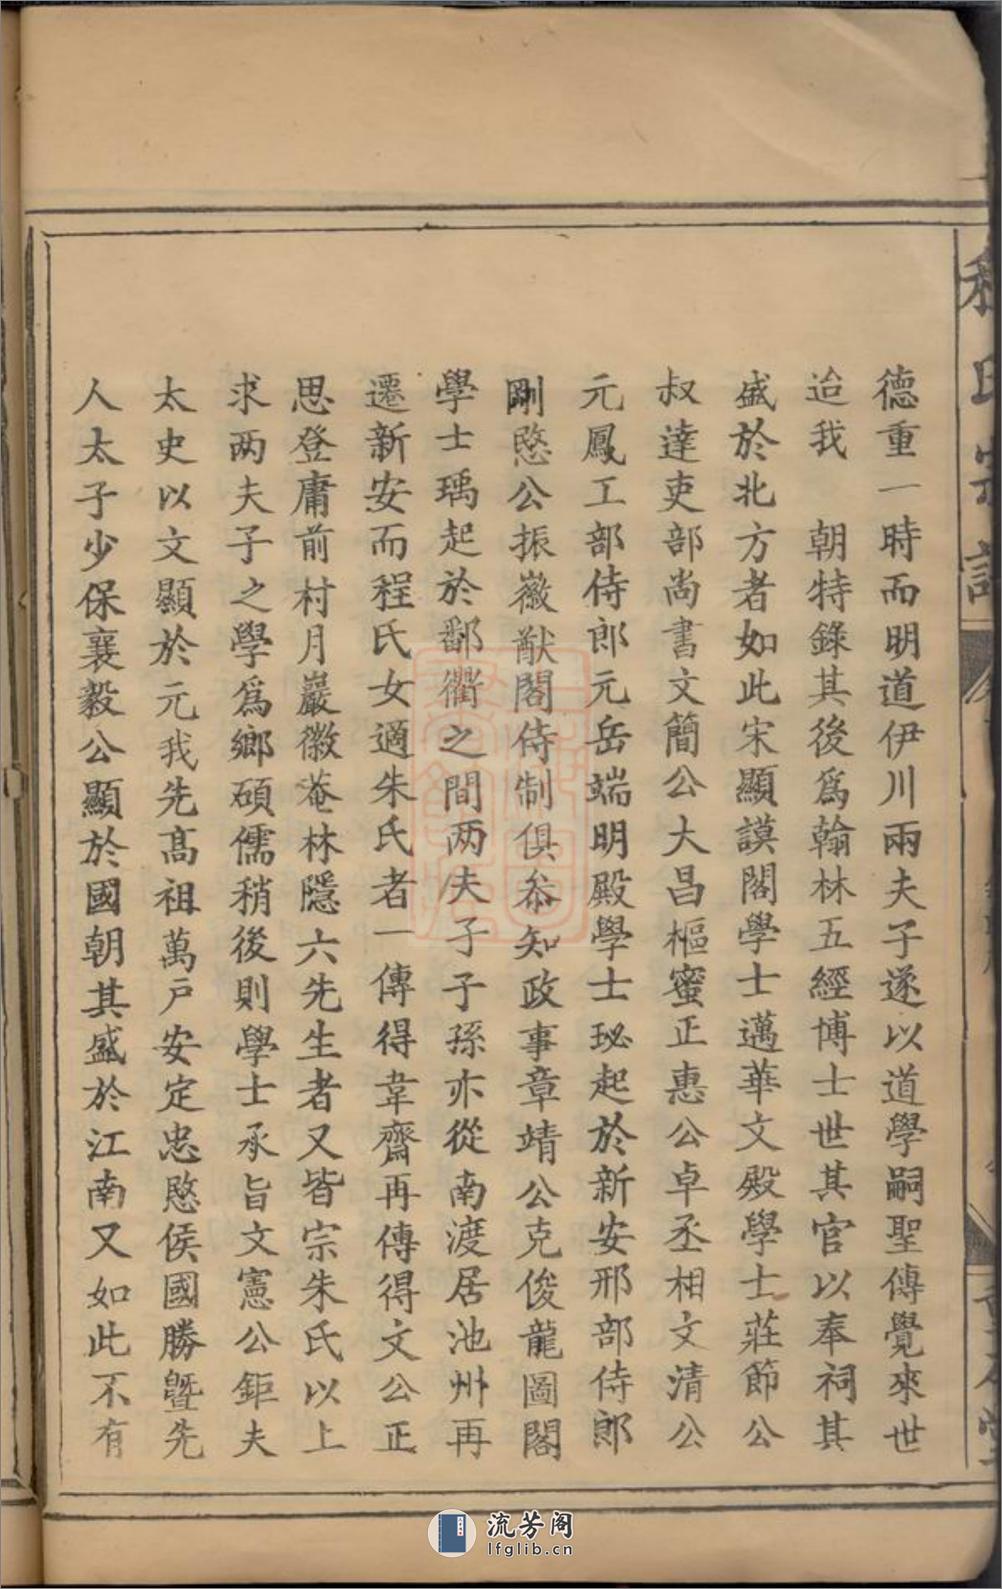 德重一時而明道伊川兩夫子遂以道學嗣聖傳覺來世
迨我 朝特錄其後爲翰林五經博士世其官以奉祠其
盛於北方者如此宋顯謨閣學士邁華文殿學士莊節公
叔達吏部尚書文簡公大昌樞蜜正惠公卓丞相文清公
元鳳工部侍郎元岳端明殿學士珌起於新安邢部侍郎
剛愍公振徽猷閣侍制俱叅知政事章靖公克俊龍圖閣
學士瑀起於鄱衢之間两夫子子孫亦從南渡居池州再
遷新安而程氏女適朱氏者一傳得韋齋再傳得文公正
思登庸前村月巖徽菴林隱六先生者又皆宗朱氏以上
求两夫子之學爲鄉碩儒稍後則學士承旨文憲公鉅夫
太史以文顯於元我先髙祖萬戸安定忠愍侯國勝曁先
人太子少保襄毅公顯於國朝其盛於江南又如此不有
程氏宗譜
流芳阁
lfglib.cn